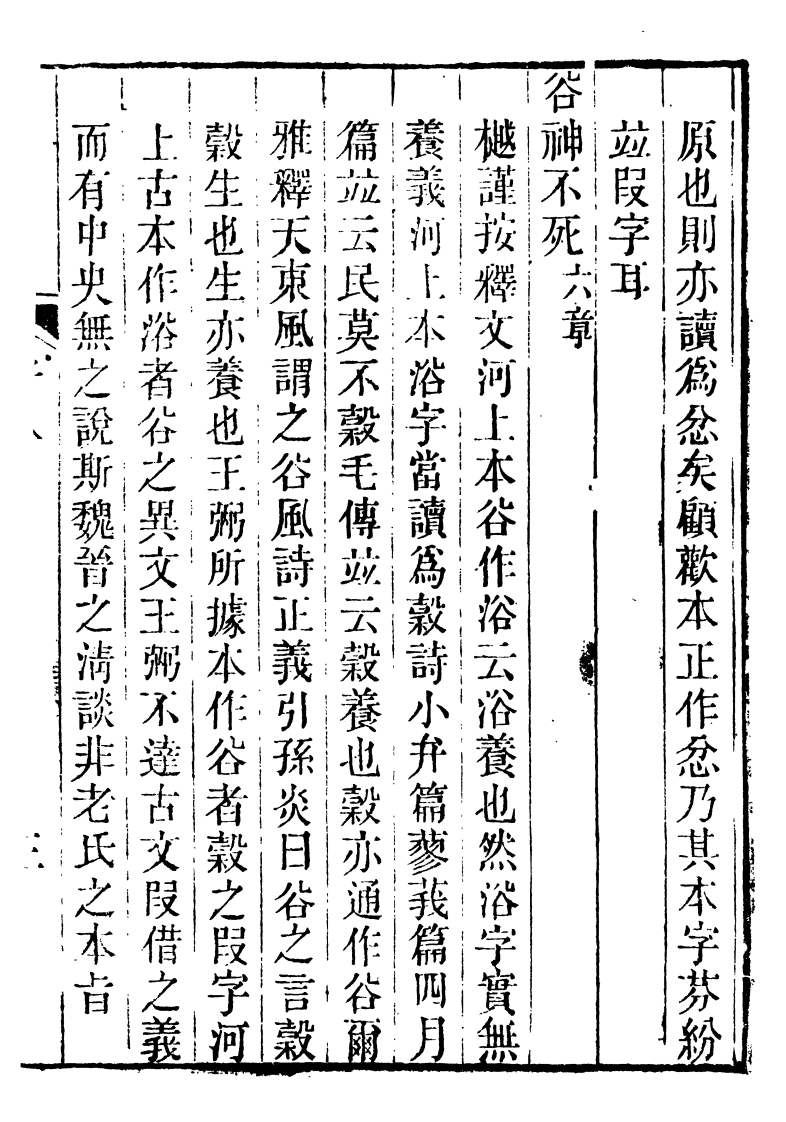 原也則亦讀爲忿矣顧歡本正作忿乃其本字芬紛
竝叚字耳
谷神不死六章
樾謹按釋文河上本谷作浴云浴養也然浴字實無
養義河上本浴字當讀爲穀詩小弁篇蓼莪篇四月
篇竝云民莫不穀毛傳竝云穀養也穀亦通作谷爾
雅釋天東風謂之谷風詩正義引孫炎曰谷之言穀
穀生也生亦養也王弼所據本作谷者穀之叚字河
上古本作浴者谷之異文王弼不達古文叚借之義
而有中央無之說斯魏晉之淸談非老氏之本旨